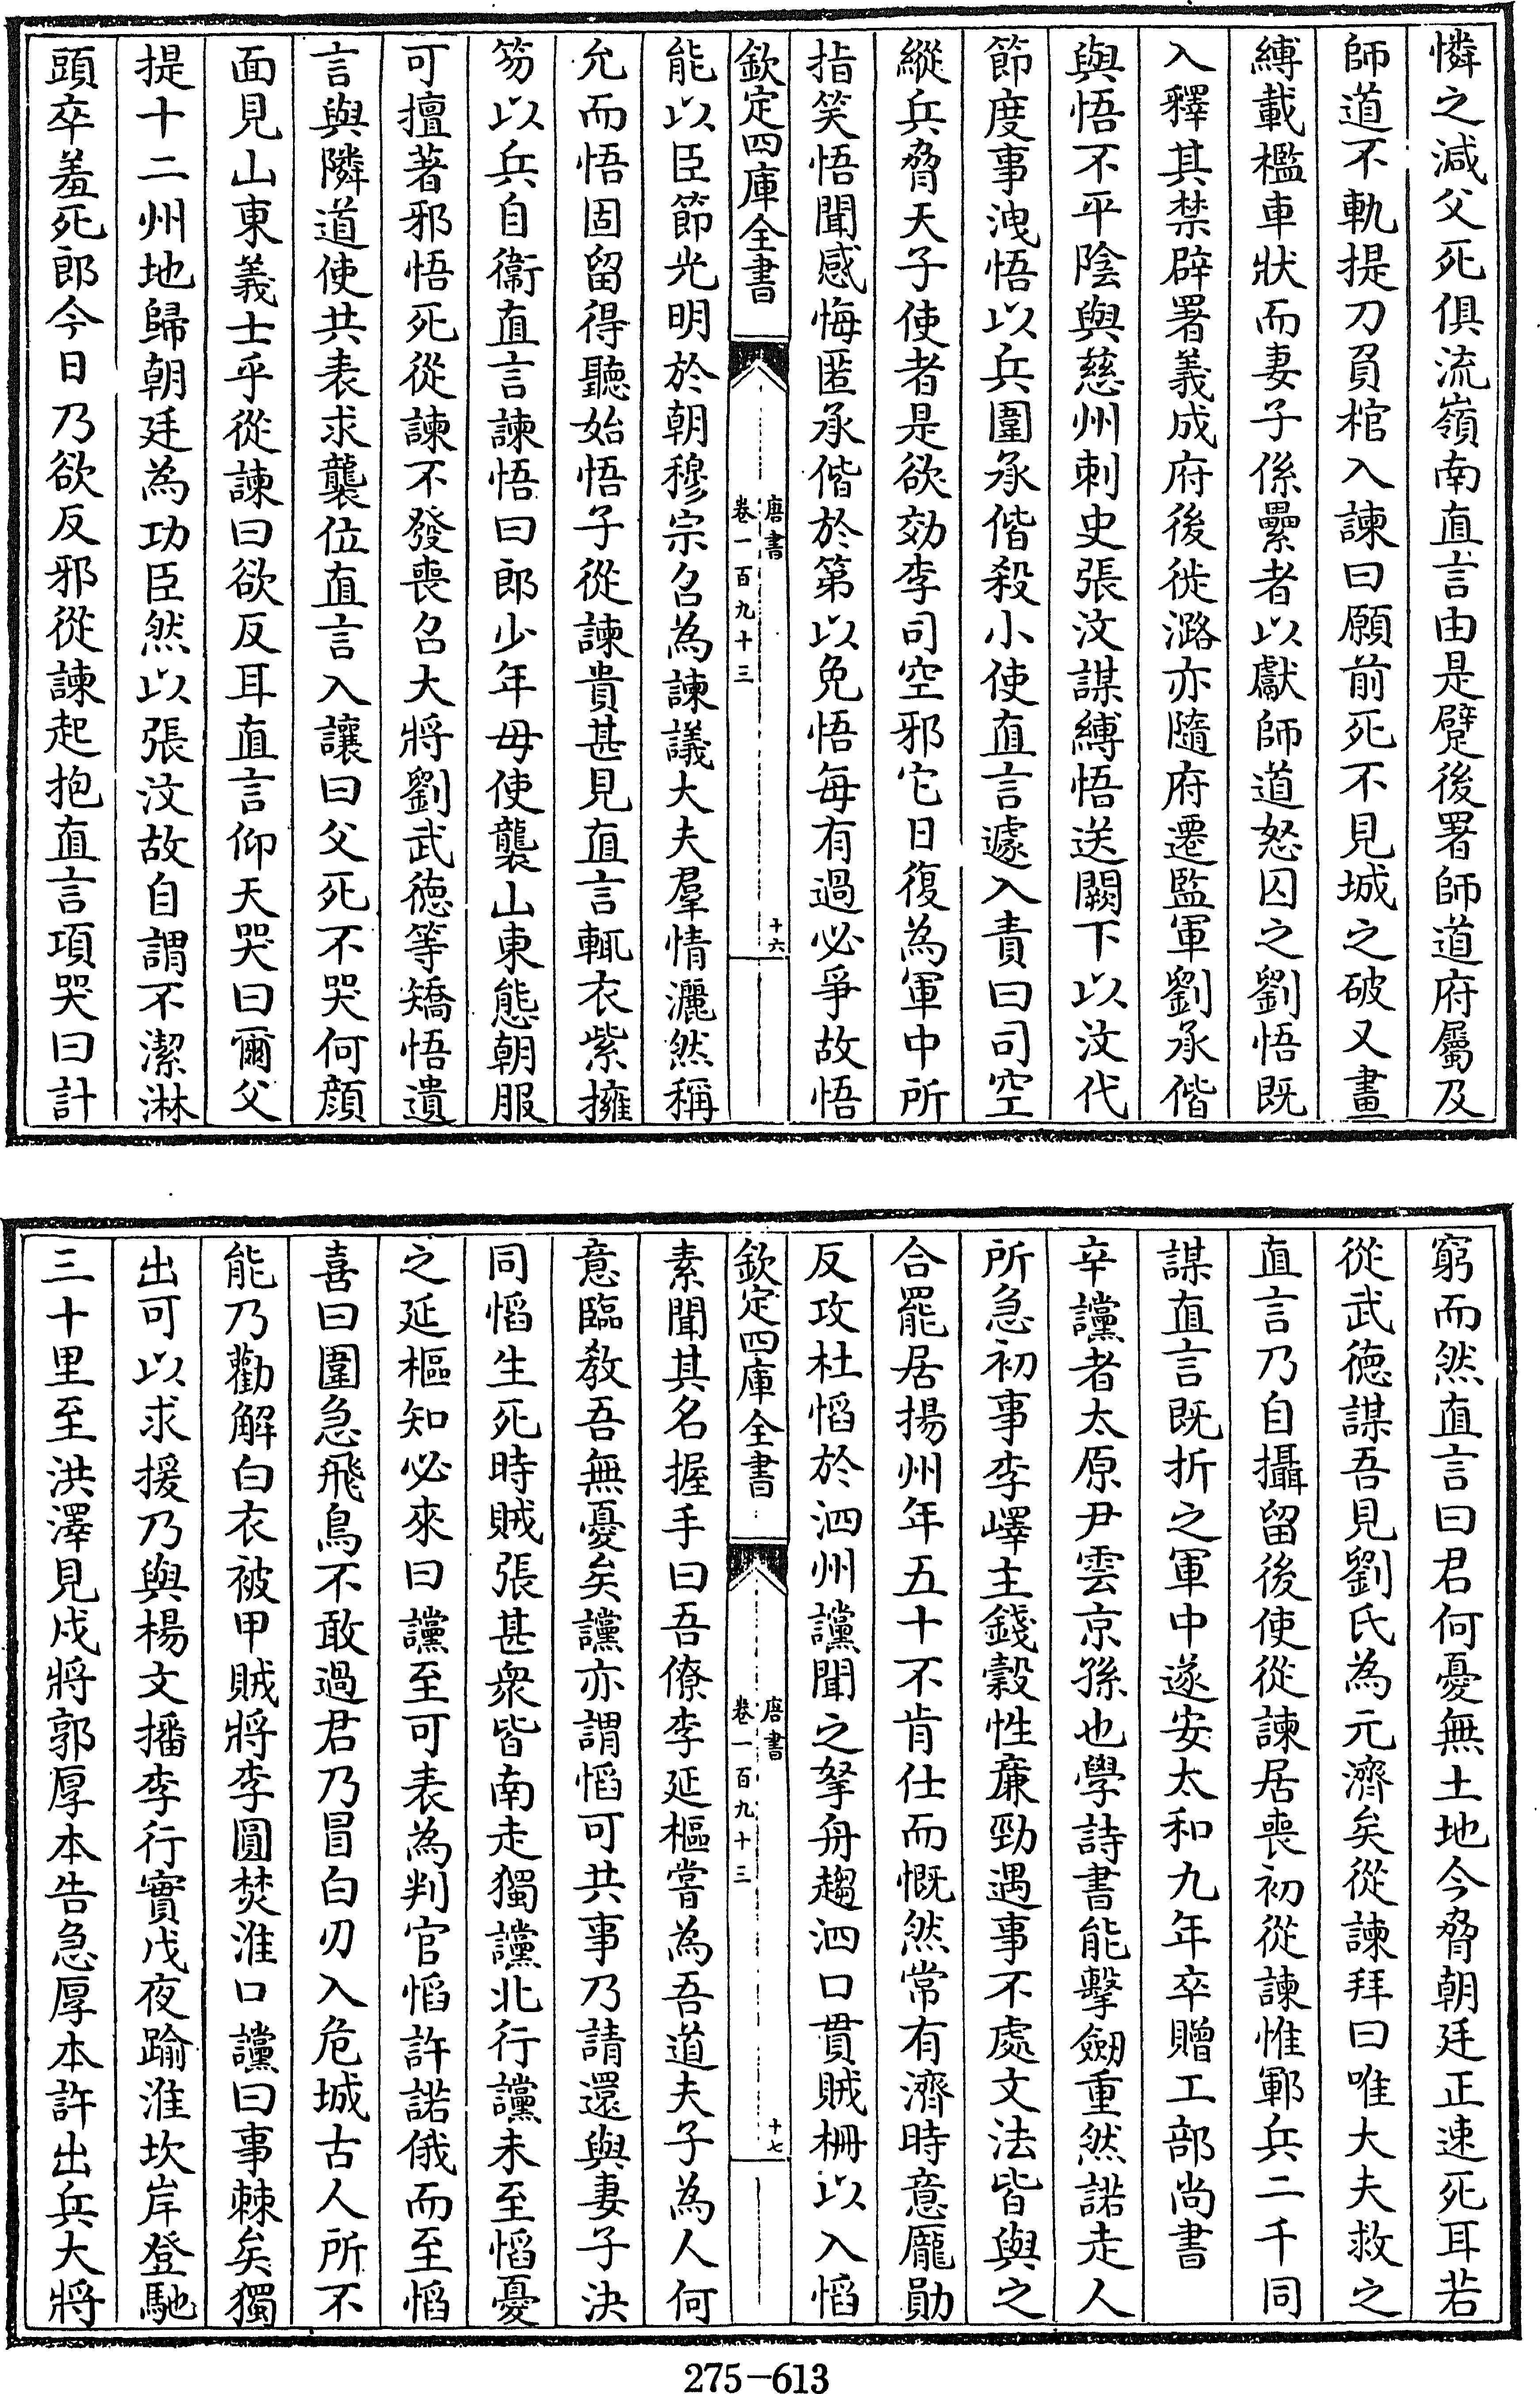 憐之減父死俱流嶺南直言由是躄後署師道府屬及
師道不軌提刀負棺入諫曰願前死不見城之破又畫
縛載檻車狀而妻子係纍者以獻師道怒囚之劉悟既
入釋其禁辟署義成府後徙潞亦隨府遷監軍劉承偕
與悟不平陰與慈州刺史張汶謀縛悟送闕下以汶代
節度事洩悟以兵圍承偕殺小使直言遽入責曰司空
縱兵脅天子使者是欲効李司空邪它日復為軍中所
指笑悟聞感悔匿承偕於第以免悟每有過必爭故悟
欽定四庫全書
唐書
卷一百九十三
十六
能以臣節光明於朝穆宗召為諫議大夫羣情灑然稱
允而悟固留得聽始悟子從諫貴甚見直言輒衣紫擁
笏以兵自衞直言諫悟曰郎少年毋使襲山東態朝服
可擅著邪悟死從諫不發喪召大將劉武德等矯悟遺
言與隣道使共表求襲位直言入讓曰父死不哭何顔
面見山東義士乎從諫曰欲反耳直言仰天哭曰爾父
提十二州地歸朝廷為功臣然以張汶故自謂不潔淋
頭卒羞死郎今日乃欲反邪從諫起抱直言項哭曰計
窮而然直言曰君何憂無土地今脅朝廷正速死耳若
從武德謀吾見劉氏為元濟矣從諫拜曰唯大夫救之
直言乃自攝留後使從諫居喪初從諫惟鄆兵二千同
謀直言既折之軍中遂安太和九年卒贈工部尚書
辛讜者太原尹雲京孫也學詩書能擊劒重然諾走人
所急初事李嶧主錢穀性亷勁遇事不處文法皆與之
合罷居揚州年五十不肯仕而慨然常有濟時意龎勛
反攻杜慆於泗州讜聞之拏舟趨泗口貫賊柵以入慆
欽定四庫全書
唐書
卷一百九十三
十七
素聞其名握手曰吾僚李延樞嘗為吾道夫子為人何
意臨敎吾無憂矣讜亦謂慆可共事乃請還與妻子決
同慆生死時賊張甚衆皆南走獨讜北行讜未至慆憂
之延樞知必來曰讜至可表為判官慆許諾俄而至慆
喜曰圍急飛鳥不敢過君乃冒白刃入危城古人所不
能乃勸解白衣被甲賊將李圓焚淮口讜曰事棘矣獨
出可以求援乃與楊文播李行實戊夜踰淮坎岸登馳
三十里至洪澤見戍將郭厚本告急厚本許出兵大將
275-613